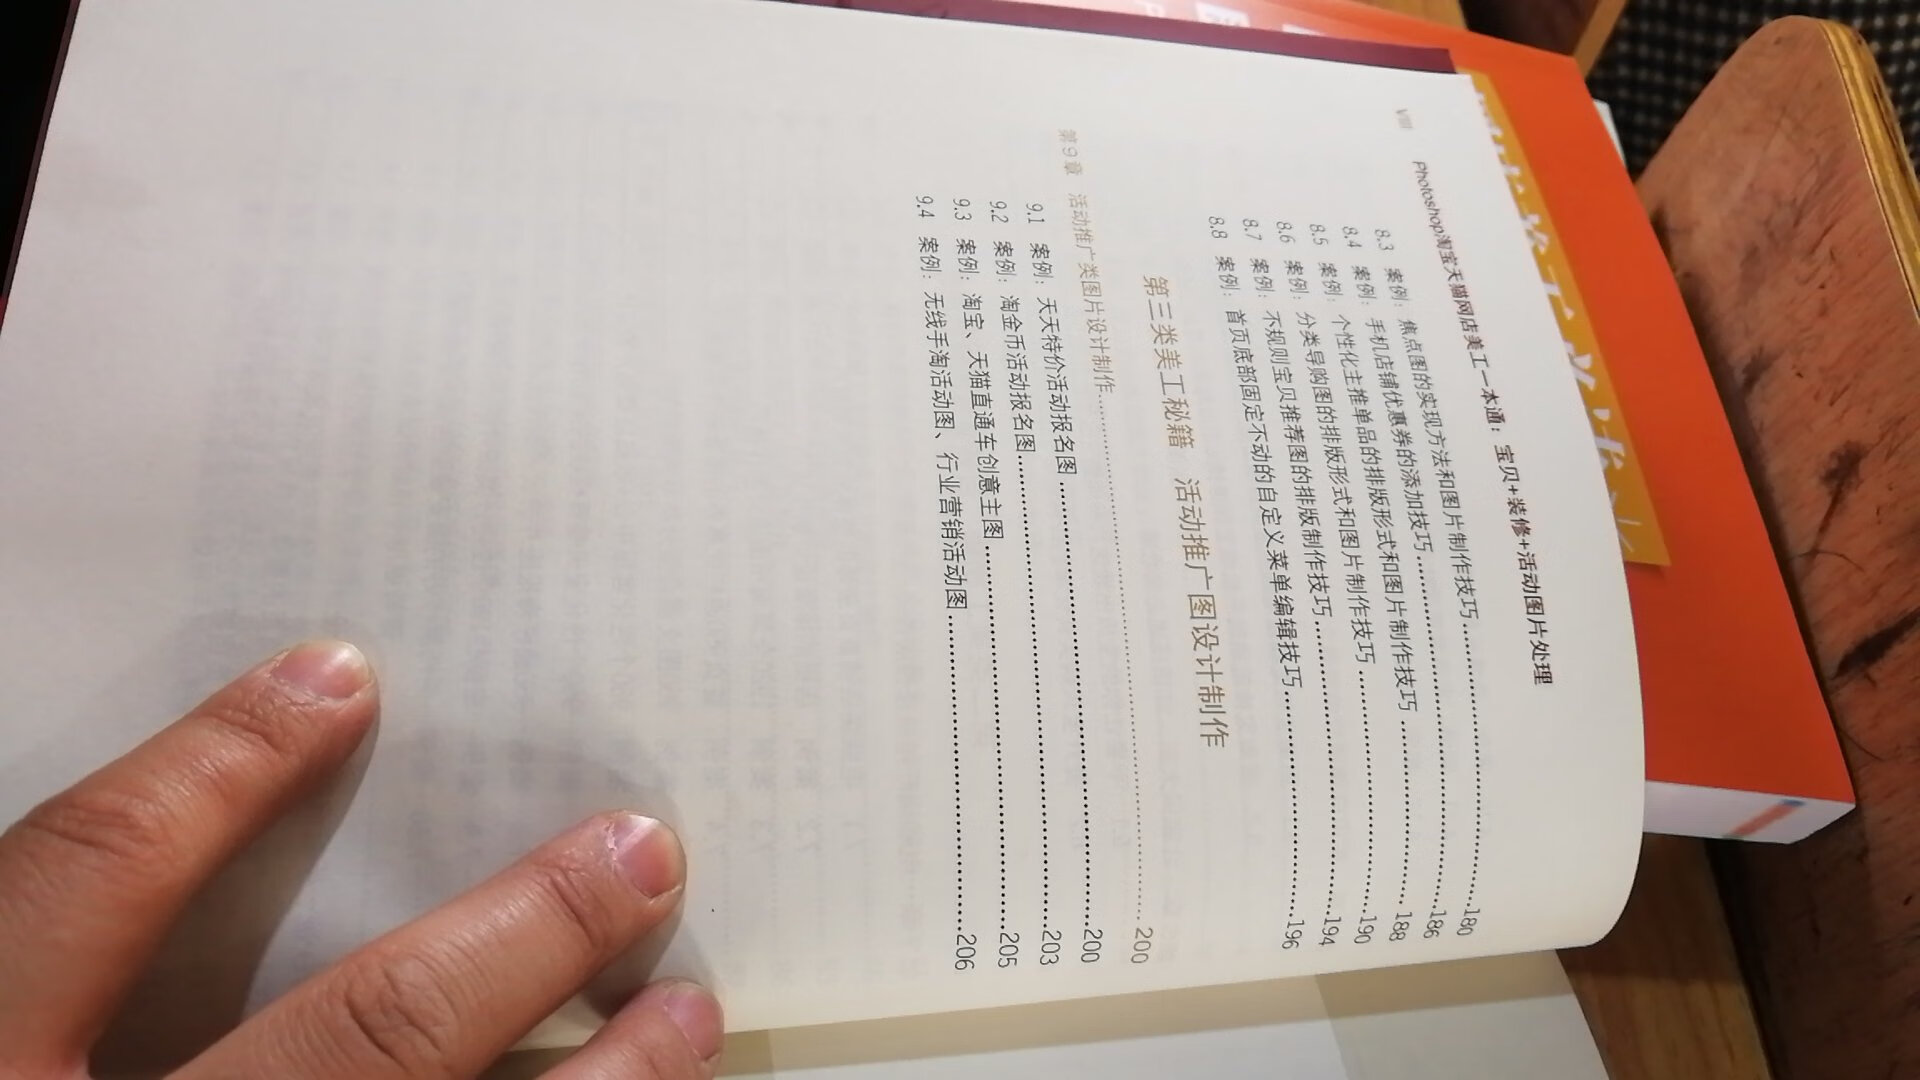 VIII Photoshop淘宝天猫网店美工一本通：宝贝+装修+活动图片处理
8.3 案例：焦点图的实现方法和图片制作技巧……180
8.4 案例：手机店铺优惠券的添加技巧……186
8.5 案例：个性化主推单品的排版形式和图片制作技巧……188
8.6 案例：分类导购图的排版形式和图片制作技巧……190
8.7 案例：不规则宝贝推荐图的排版制作技巧……194
8.8 案例：首页底部固定不动的自定义菜单编辑技巧……196
第三类美工秘籍 活动推广图设计制作
第9章 活动推广类图片设计制作……200
9.1 案例：天天特价活动报名图……200
9.2 案例：淘金币活动报名图……203
9.3 案例：淘宝、天猫直通车创意主图……205
9.4 案例：无线手淘活动图、行业营销活动图……206